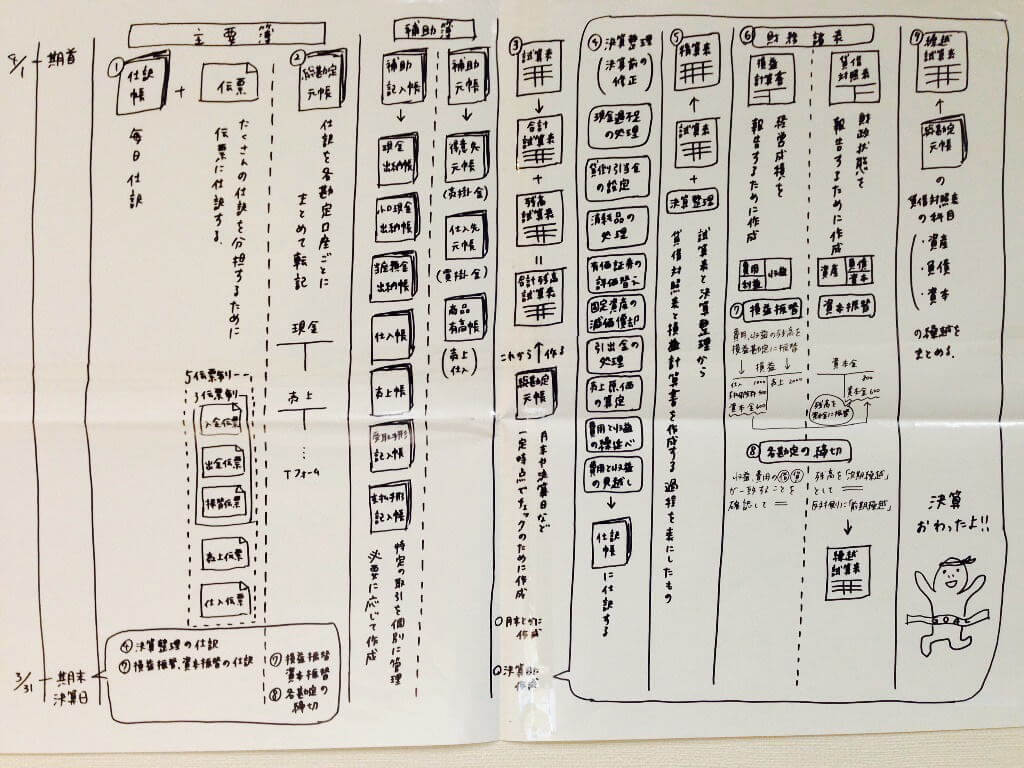 4/1 期首
主要簿
①仕訳帳
+
伝票
毎日仕訳
たくさんの仕訳を分担するために
伝票に仕訳する.
5伝票制
3伝票制
入金伝票
出金伝票
振替伝票
売上伝票
仕入伝票
②総勘定元帳
仕訳を各勘定口座ごとに
まとめて転記
現金
売上
⋮
Tフォーム
補助簿
補助記入帳
現金出納帳
小口現金出納帳
当座預金出納帳
仕入帳
売上帳
受取手形記入帳
支払手形記入帳
補助元帳
得意先元帳
(売掛金)
仕入先元帳
(買掛金)
商品有高帳
(売上仕入)
特定の取引を個別に管理
必要に応じて作成
③試算表
合計試算表
+
残高試算表
=
合計残高試算表
これから作る
総勘定元帳
月末や決算日など
一定時点でチェックのために作成
○月末とかに作成
○決算時作成
④決算整理
(決算前の修正)
現金過不足の処理
貸倒引当金の設定
消耗品の処理
有価証券の評価替え
固定資産の減価償却
引出金の処理
売上原価の算定
費用と収益の繰延べ
費用と収益の見越し
仕訳帳に仕訳する
⑤精算表
試算表
+
決算整理
試算表と決算整理から
貸借対照表と損益計算書を作成する過程を表にしたもの
⑥財務諸表
損益計算書
経営成績を
報告するために作成
費用
利益
収益
貸借対照表
財政状態を
報告するために作成
資産
負債
資本
⑦損益振替
費用、収益の残高を
損益勘定に振替
損益
仕入 1000
売上 2000
資本金600
資本振替
資本金
800
資本金600
残高を
資本金に振替
⑧各勘定の締切
収益、費用の借貸
が一致することを
確認して
残高を「次期繰越」
として
反対側に「前期繰越」
繰越試算表
⑨繰越試算表
総勘定元帳の
貸借対照表の科目
・資産
・負債
・資本
の繰越を
まとめる.
決算
おわったよ!!
3/31 期末
決算日
④決算整理の仕訳
⑦損益振替、資本振替の仕訳
⑦損益振替
資本振替
⑧各勘定の
締切